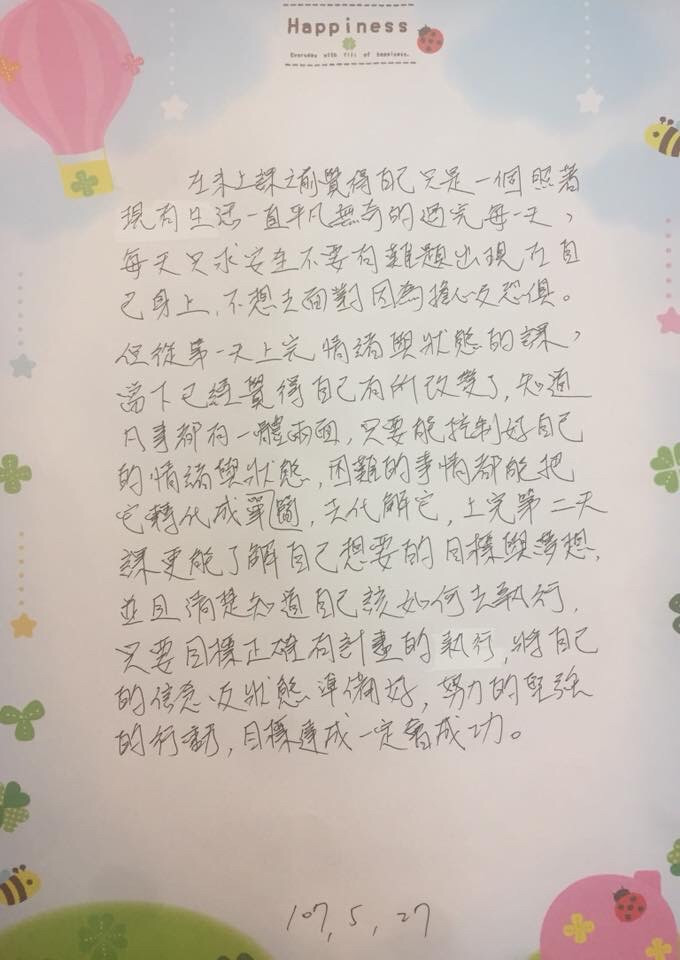 Happiness
Everyday with full of happiness.
在未上課之前覺得自己只是一個照著
現有生活一直平凡無奇的過完每一天,
每天只求安全不要有難題出現在自
己身上,不想去面對因為擔心及恐俱。
但從第一天上完情緒與狀態的課,
當下已經覺得自己有所改變了,知道
凡事都有一體兩面,只要能控制好自己
的情緒與狀態,困難的事情都能把
它轉化成單簡,去化解它,上完第二天
課更能了解自己想要的目標與夢想,
並且清楚知道自己該如何去執行,
只要目標正確有計畫的執行,將自己
的信念及狀態準備好,努力的堅強
的行動,目標達成一定會成功。
107,5,27